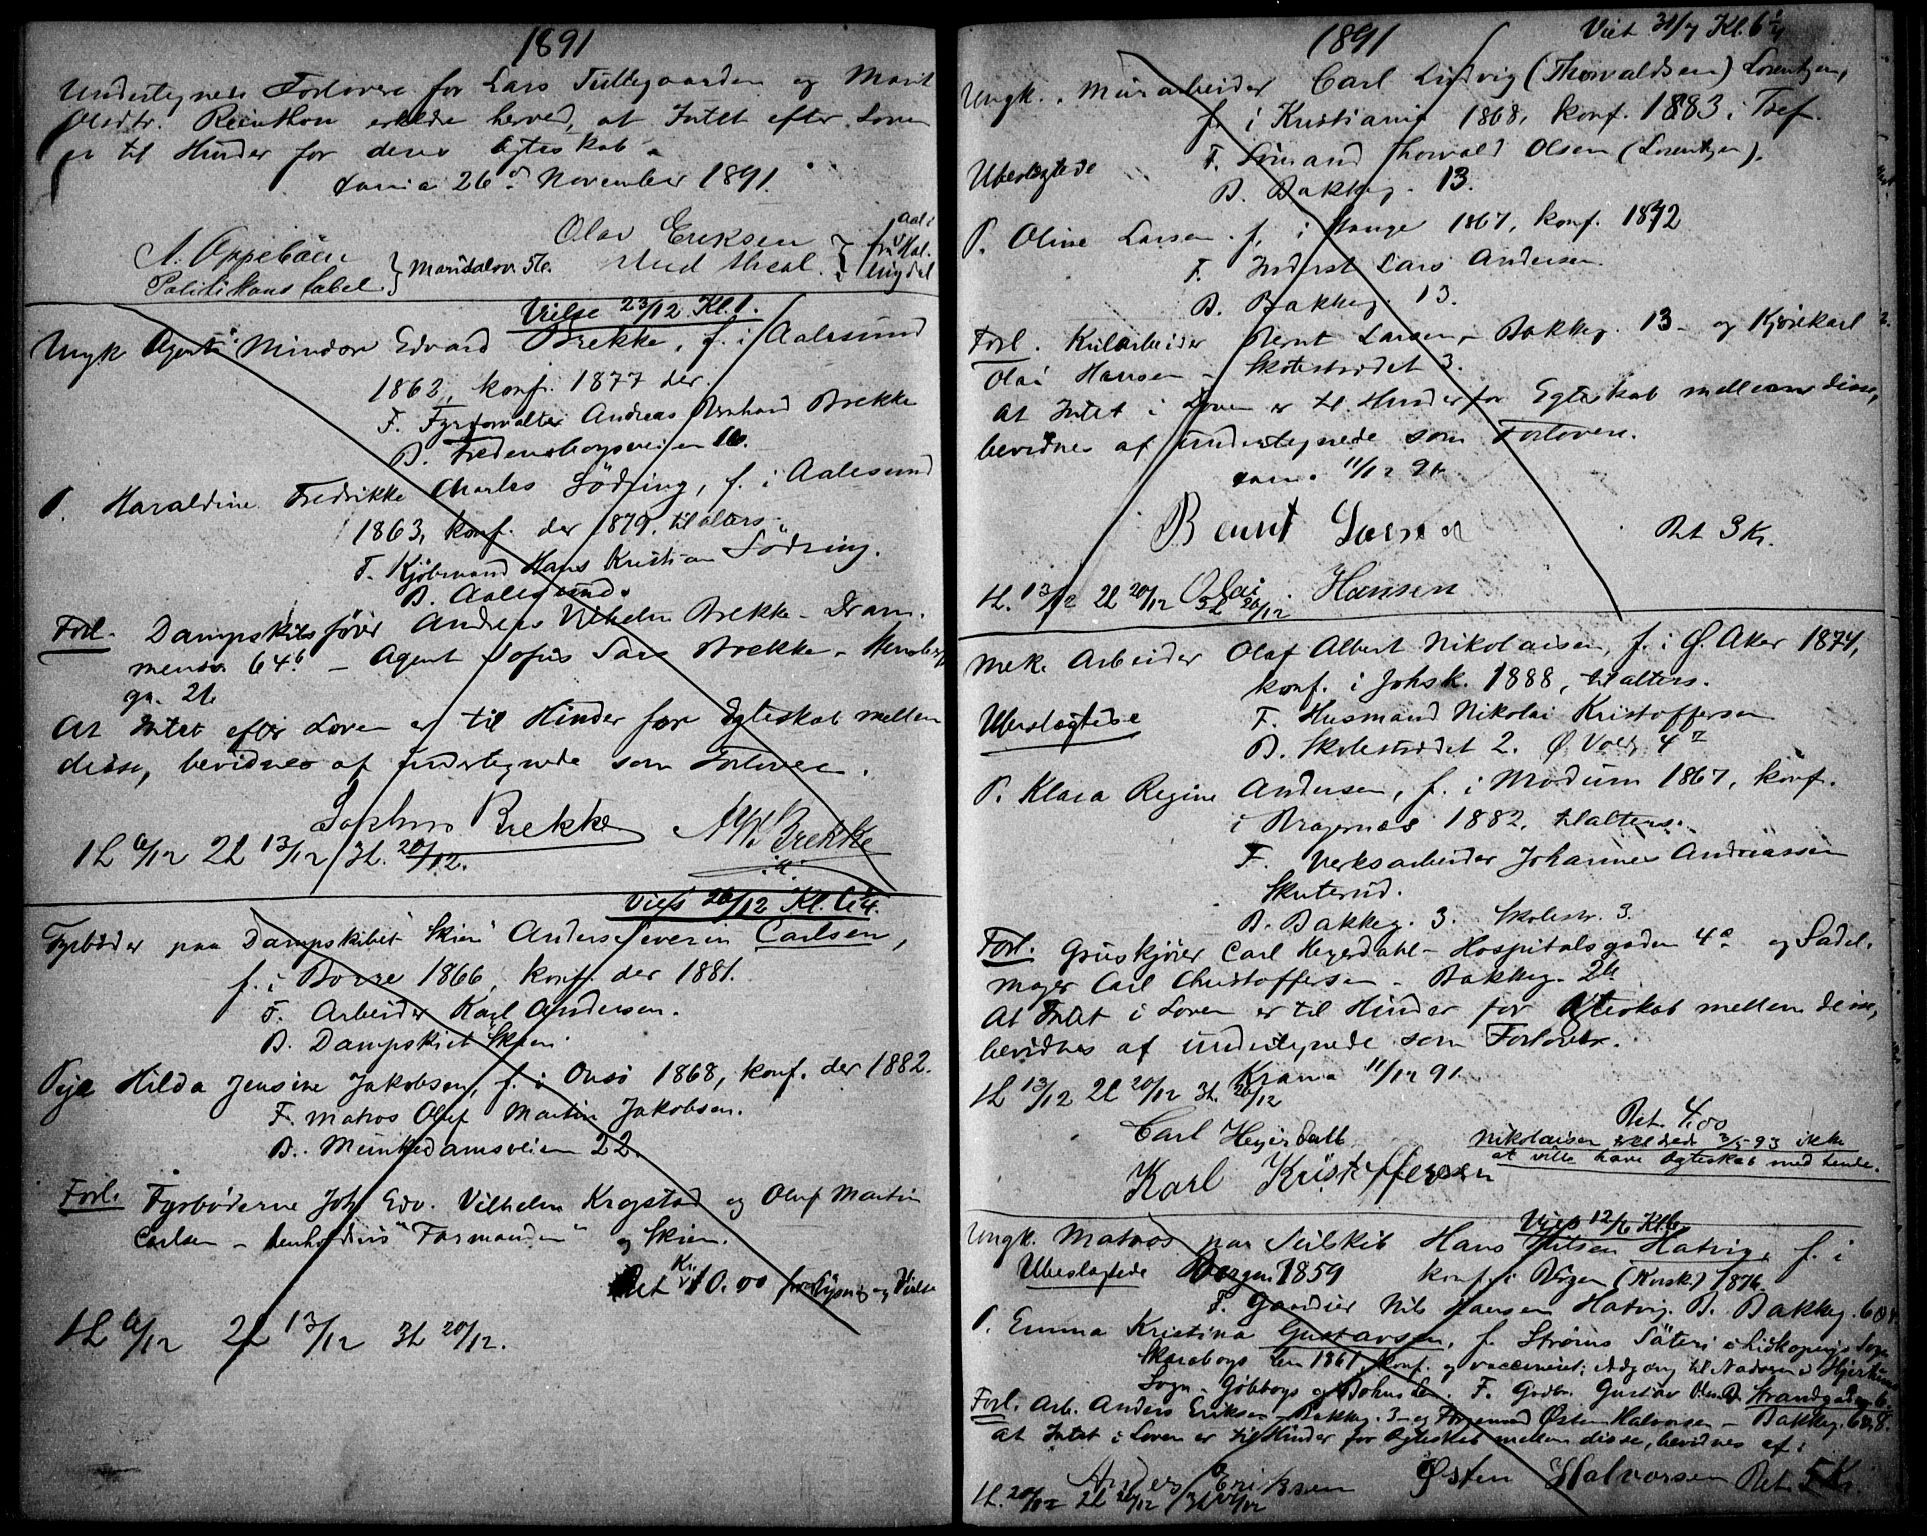 1891
Undertegnede Forlovere for Lars Tuftegaarden og Marit
Olsdtr. Reinthon erklære herved, at Intet efter Loven
er til Hinder for deres Ægteskab.
Xania 26de November 1891.
A. Oppeböen
Politikonstabel
Maridalsv. 5b.
Olav Eriksen
Aal i
Hal-
lingdal
Vielse 23/12 Kl. 1.
Ungk. Agent Mindor Edvard Brekke, f. i Aalesund
1862, konf. 1877 der.
F. Fyrforvalter Andreas Bernhard Brekke
B. Fredensborgveien 16.
P. Haraldine Fredrikke Charles Södring, f. i Aalesund
1863, konf. der 1879. til alters.
F. Kjöbmand Hans Kristian Södring.
B. Aalesund.
Forl. Dampskibsfører Andreas Vilhelm Brekke – Dram-
mensv. 64b – Agent Sofus Lars Brekke – Hensberg
gd. 21.
At Intet efter Loven er til Hinder for Egteskab mellem
disse, bevidnes af undertegnede som Forlovere.
Sophus Brekke A W Brekke
1L 6/12 2L 13/12 3L. 20/12.
Viels 26/12 Kl. 6 1/4.
Fyrböder paa Dampskibet Skien Anders Severin Carlsen,
f. i Borre 1866, konf. der 1881.
F. Arbeider Karl Andersen.
B. Dampskibet Skien.
Pige Hilda Jensine Jakobsen, f. i Onsö 1868, konf. der 1882.
F. Matros Oluf Martin Jakobsen.
B. Munkedamsveien 22.
Forl. Fyrböderne Joh. Edv. Vilhelm Krogstad og Oluf Martin
Carlsen – henholdsvis "Farmanden" og Skien.
Bet Kr. 10.00 for Lysning og Vielse
1L 6/12 2L 13/12 3L 20/12.
1891
Viet 31/7 Kl. 6 1/4
Ungk. Murarbeider Carl Ludvig (Thorvaldsen) Lorentzen,
f. i Kristiania 1868, konf. 1883 i Tref.
F. Sömand Thorvald Olsen (Lorentzen).
Ubeslægtede
B. Bakkeg. 13.
P. Oline Larsen f. i Stange 1867, konf. 1872
F. Inderst Lars Andersen
B. Bakkeg. 13.
Forl. Kularbeider Bernt Larsen – Bakkeg. 13 – og Kjørekarl
Olai Hansen – Skolestrædet 3.
At Intet i Loven er til Hinder for Egteskab mellem disse,
bevidnes af undertegnede som Forlovere.
Xania 11/12 91.
Bernt Larsen
Bet 3 Kr.
Olai Hansen
1L. 13/12 2L 20/12 3L 26/12
Mek. Arbeider Olaf Albert Nikolaisen, f. i Ø. Aker 1874,
konf. i Johsk. 1888, til alters.
Ubeslægtede
F. Husmand Nikolai Kristoffersen
B. Skolestrædet 2. Ø. Vold 4 II
P. Klara Regine Andersen, f. i Modum 1867, konf.
i Bragernæs 1882. til alters.
F. Verksarbeider Johannes Andreassen
Skuterud.
B. Bakkeg. 3. Skolestr. 3.
Forl. Gruskjörer Carl Heyerdahl – Hospitalsgaden 4c og Sadel-
mager Carl Christoffersen – Bakkeg. 26
At Intet i Loven er til Hinder for Ægteskab mellem disse,
bevidnes af undertegnede som Forlovere.
Krania 11/12 91.
1L 13/12 2L 20/12 3L. 26/12
Carl Heyerdahl
Bet. 4,00
Nikolaisen erklærede 3/5-93 ikke
at ville have Ægteskab med hende.
Karl Kristoffersen
Viels 12/6 Kl. 6
Ungk. Matros paa Seilskib Hans Nilsen Hatvig, f. i
Ubeslægtede Bergen 1859 konf. i Bergen (Korsk.) 1876.
F. Gaardeier Nils Hansen Hatvig. B. Bakkeg. 6
P. Emma Kristina Gustavsen, f. Ströms Säteri i Lidköpings Sogn
Skaraborgs Len 1861, konf. og vaccineret; Adgang til Nadveren i
Sogn – Göteborgs og Bohus Len. F. Godbr. Gustav B. Strandgaden 6.
Forl. Arb. Anders Eriksen – Bakkeg. 3 – og Formand Østen Halvorsen – Bakkeg. 6
At Intet i Loven er til Hinder for Ægteskab mellem disse, bevidnes af:
Anders Eriksen Østen Halvorsen Bet. 5 Kr.
1L. 20/12 2L 26/12 3L 27/12